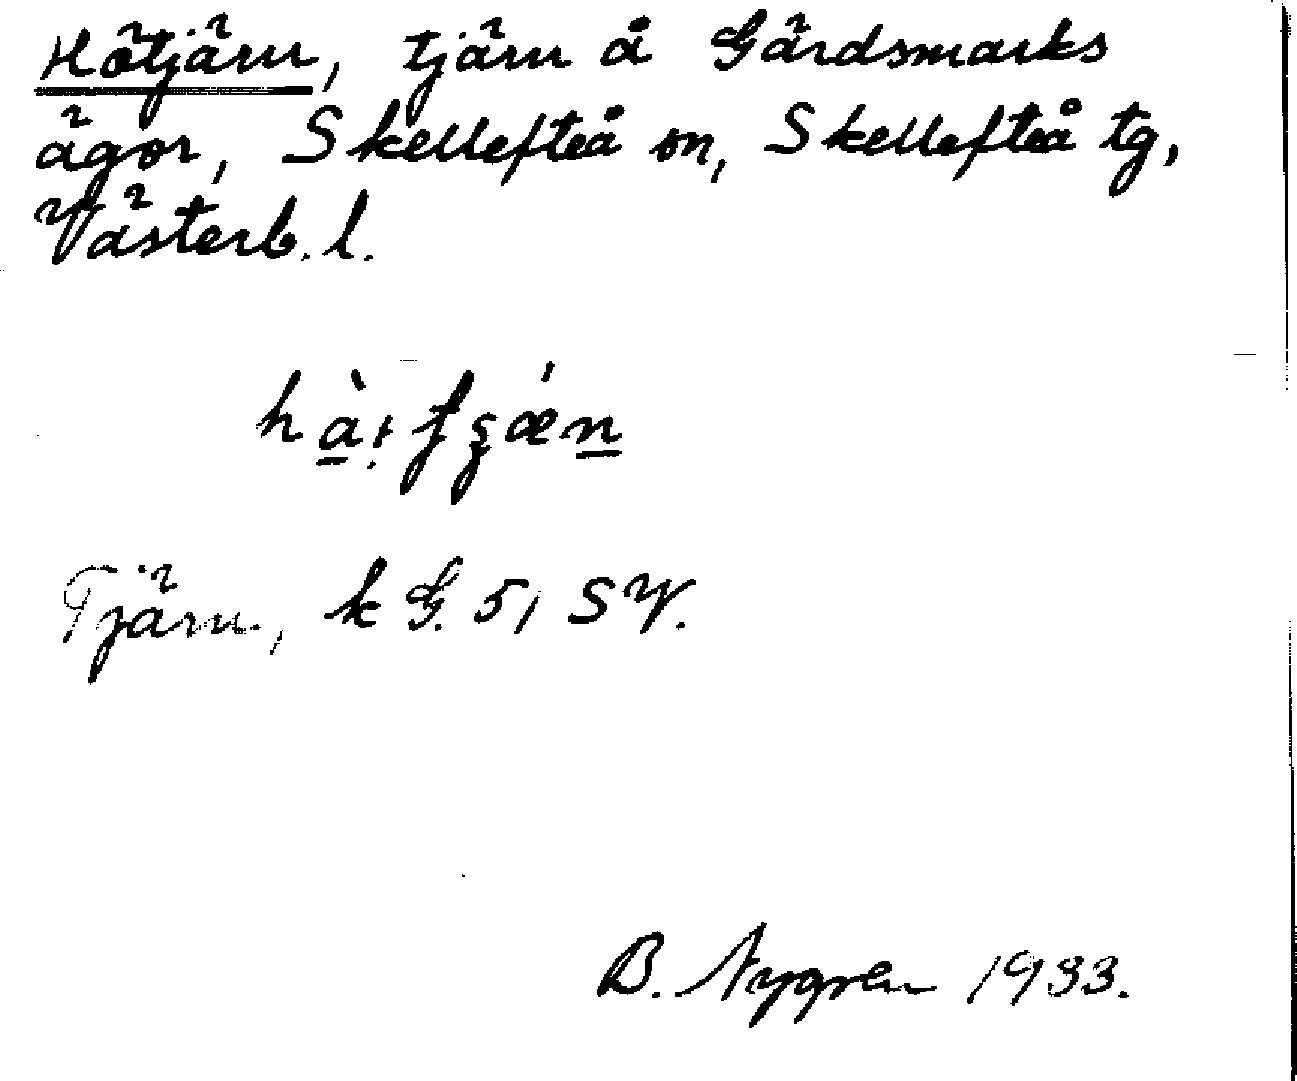 Hötjärn, tjärn å Gärdsmarks
ägor, Skellefteå sn, Skellefteå tg,
Västerb. l.
Tjärn, k G. 51 SV.
B. Nygren 1933.